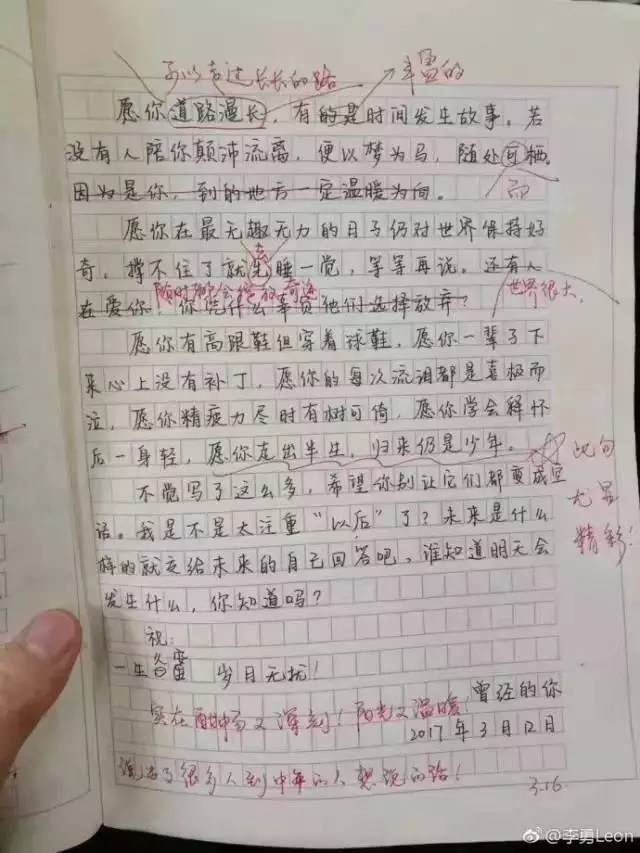 可以走过长长的路 丰盈的
愿你道路漫长，有的是时间发生故事。若
没有人陪你颠沛流离，便以梦为马，随处可栖。
因为是你，到的地方一定温暖为向。 而
愿你在最无趣无力的日子仍对世界保持好
奇，撑不住了就先睡一觉，等等再说。还有人
随时都会
世界很大，
在爱你！你凭什么辜负他们选择放弃？
愿你有高跟鞋但穿着球鞋，愿你一辈子下
来心上没有补丁，愿你的每次流泪都是喜极而
泣，愿你精疲力尽时有树可倚，愿你学会释怀
后一身轻，愿你走出半生，归来仍是少年。
此句
尤显
精彩！
不觉写了这么多，希望你别让它们都变成空
话。我是不是太注重“以后”了？未来是什么
样的就交给未来的自己回答吧，谁知道明天会
发生什么，你知道吗？
祝：
一生备蜜 岁月无扰！
曾经的你
实在酣畅又深刻！阳光又温暖！
2017年3月12日
说出了很多人到中年的人想说的话！
3.16
@李勇Leon